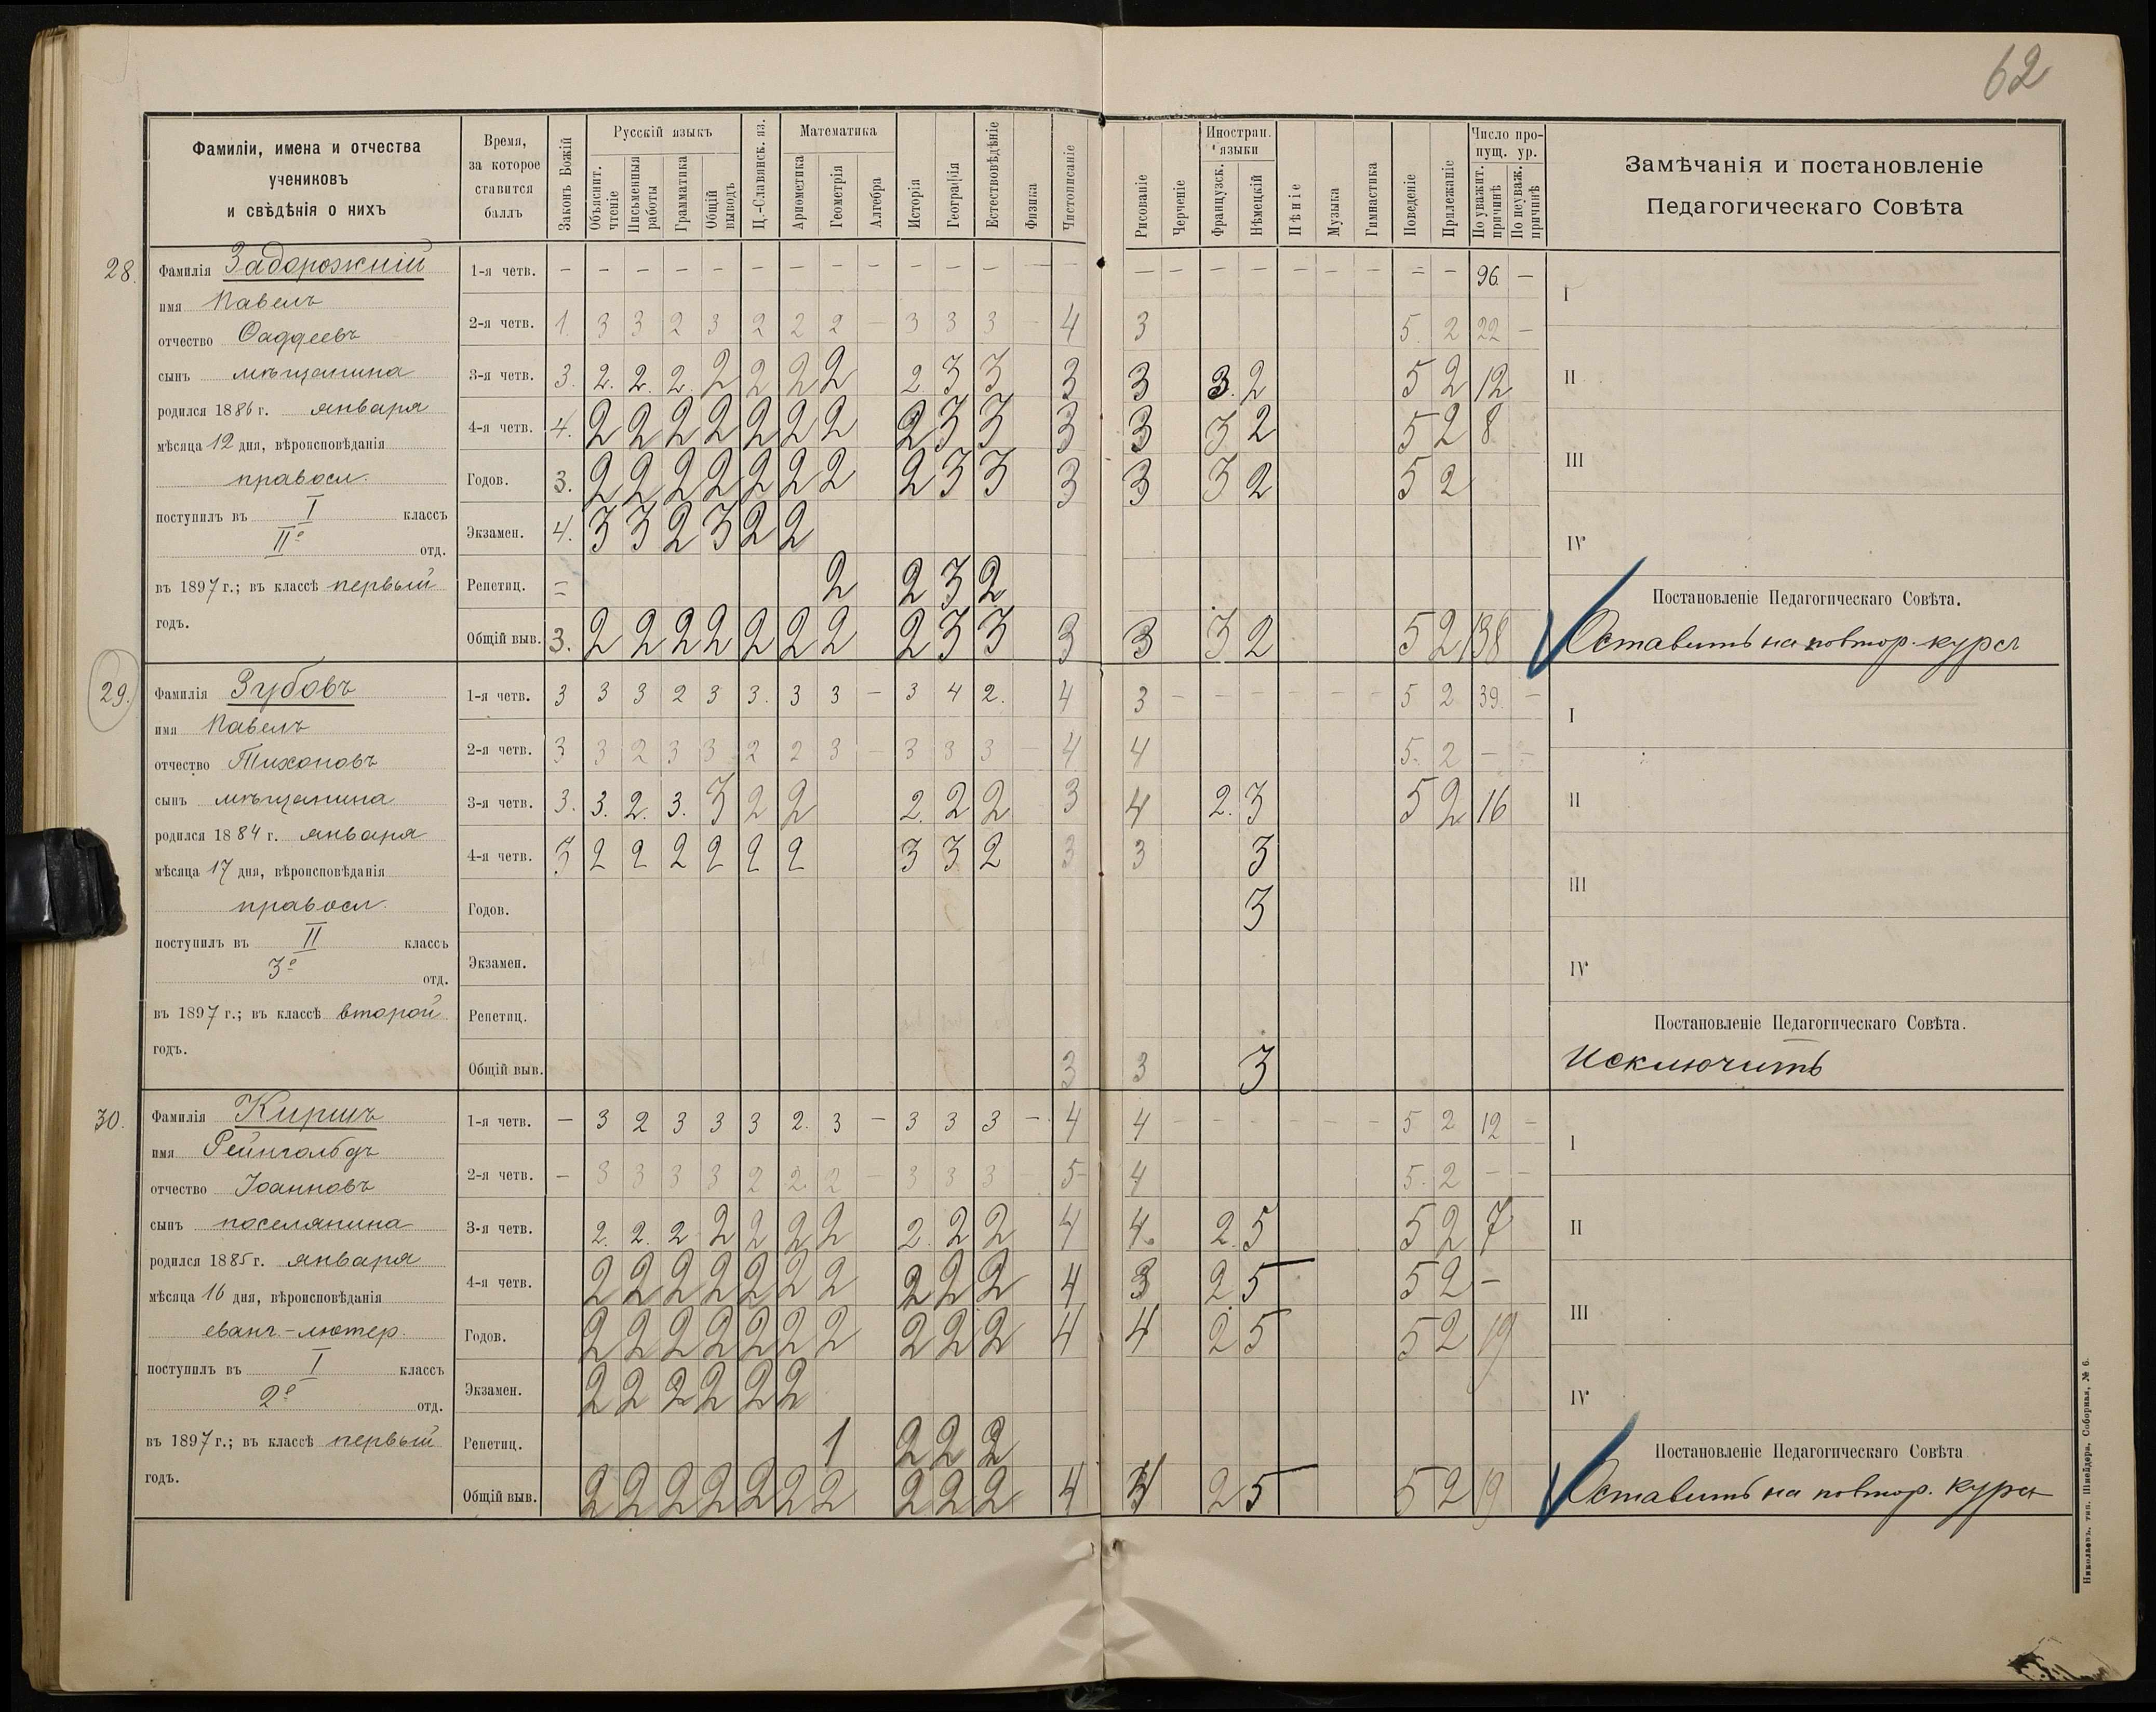 62
Фамиліи, имена и отчества
учениковъ
и свѣдѣнія о нихъ
Время,
за которое
ставится
баллъ
Законъ Божій
Русскій языкъ
Объяснит. чтеніе
Письменныя работы
Грамматика
Общій выводъ
Ц.-Славянск. яз.
Математика
Ариѳметика
Геометрія
Алгебра
Исторія
Географія
Естествовѣдѣніе
Физика
Чистописаніе
Рисованіе
Черченіе
Иностран. языки
Французск.
Нѣмецкій
Пѣніе
Музыка
Гимнастика
Поведеніе
Прилежаніе
Число пропущ. ур.
По уважит. причинѣ
По неуваж. причинѣ
Замѣчанія и постановленіе
Педагогическаго Совѣта
28.
Фамилія Задорожній
имя Павелъ
отчество Ѳаддеевъ
сынъ мѣщанина
родился 1886 г. января
мѣсяца 12 дня, вѣроисповѣданія
правосл.
поступилъ въ I классъ
IIе отд.
въ 1897 г.; въ классѣ первый
годъ.
1-я четв. – – – – – – – – – – – – – – – – – – – – – – – 96 –
2-я четв. 1. 3 3 2 3 2 2 2 – 3 3 3 – 4 3 5. 2 22 –
3-я четв. 3. 2. 2. 2. 2 2 2 2 2. 3 3 3 3 3. 2 5 2 12
4-я четв. 4. 2 2 2 2 2 2 2 2 3 3 3 3 3 2 5 2 8
Годов. 3. 2 2 2 2 2 2 2 2 3 3 3 3 3 2 5 2
Экзамен. 4. 3 3 2 3 2 2
Репетиц. = 2 2 3 2
Общій выв. 3. 2 2 2 2 2 2 2 2 3 3 3 3 3 2 5 2 138
I
II
III
IV
Постановленіе Педагогическаго Совѣта.
Оставить на повтор. курсъ
29.
Фамилія Зубовъ
имя Павелъ
отчество Тихоновъ
сынъ мѣщанина
родился 1884 г. января
мѣсяца 17 дня, вѣроисповѣданія
правосл.
поступилъ въ II классъ
3е отд.
въ 1897 г.; въ классѣ второй
годъ.
1-я четв. 3 3 3 2 3 3. 3 3 – 3 4 2. 4 3 – – – – – – 5 2 39. –
2-я четв. 3 3 2 3 3 2 2 3 – 3 3 3 – 4 4 5. 2 – –
3-я четв. 3. 3. 2. 3. 3 2 2 2. 2 2 3 4 2. 3 5 2 16
4-я четв. 3 2 2 2 2 2 2 3 3 2 3 3 3
Годов. 3
Экзамен.
Репетиц.
Общій выв. 3 3 3
I
II
III
IV
Постановленіе Педагогическаго Совѣта.
Исключить
30.
Фамилія Киршъ
имя Рейнгольдъ
отчество Іоанновъ
сынъ поселянина
родился 1885 г. января
мѣсяца 16 дня, вѣроисповѣданія
еванг.-лютер.
поступилъ въ I классъ
2е отд.
въ 1897 г.; въ классѣ первый
годъ.
1-я четв. – 3 2 3 3 3 2. 3 – 3 3 3 – 4 4 – – – – – – 5 2 12 –
2-я четв. – 3 3 3 3 2 2. 2 – 3 3 3 5 4 5. 2 – –
3-я четв. 2. 2. 2 2 2 2 2 2. 2 2 4 4. 2. 5 5 2 7
4-я четв. 2 2 2 2 2 2 2 2 2 2 4 3 2. 5 5 2 –
Годов. 2 2 2 2 2 2 2 2 2 2 4 4 2 5 5 2 19
Экзамен. 2 2 2 2 2 2
Репетиц. 1 2 2 2
Общій выв. 2 2 2 2 2 2 2 2 2 2 4 4 2 5 5 2 19
I
II
III
IV
Постановленіе Педагогическаго Совѣта
Оставить на повтор. курсъ
Николаевъ, тип. Шнейдера, Соборная, № 6.